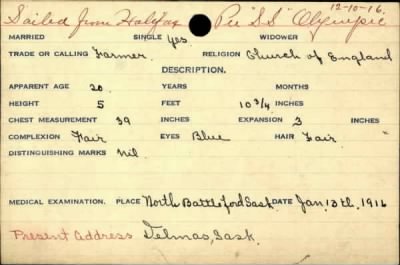 Sailed from Halifax Per "S.S" Olympic 12-10-16.
MARRIED SINGLE Yes WIDOWER
TRADE OR CALLING Farmer. RELIGION Church of England
DESCRIPTION.
APPARENT AGE 20 YEARS MONTHS
HEIGHT 5 FEET 10 3/4 INCHES
CHEST MEASUREMENT 39 INCHES EXPANSION 3 INCHES
COMPLEXION Fair EYES Blue HAIR Fair
DISTINGUISHING MARKS nil
MEDICAL EXAMINATION. PLACE North Battleford Sask DATE Jan. 13th, 1916
Present Address Delmas, Sask.